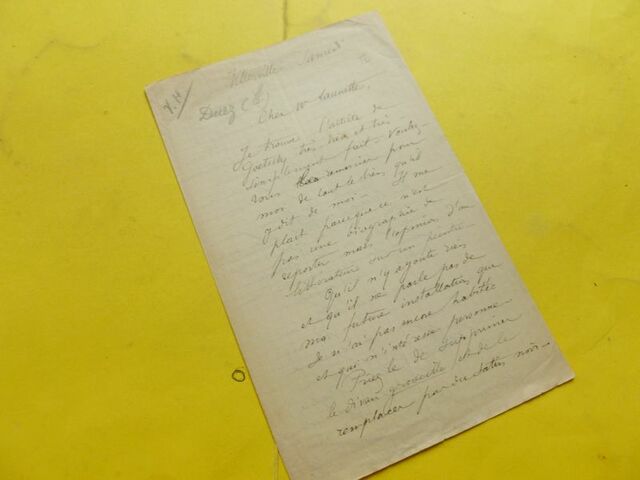 Villerville Samedi
12
Y.H/
Duez (E)
Cher Mr Launette,
Je trouve l'article de
Goetschy très bien et très
simplement fait. Voulez-
vous le remercier pour
moi de tout le bien qu'il
y dit de moi. Il me
plaît parce que ce n'est
pas une biographie de
reporter mais l'opinion d'un
littérateur sur un peintre
Qu'il n'y ajoute rien
et qu'il ne parle pas de
ma future installation que
Je n'ai pas encore habitée
et qui n'intéresse personne
Priez le de supprimer
le divan groseille et de le
remplacer par du satin noir